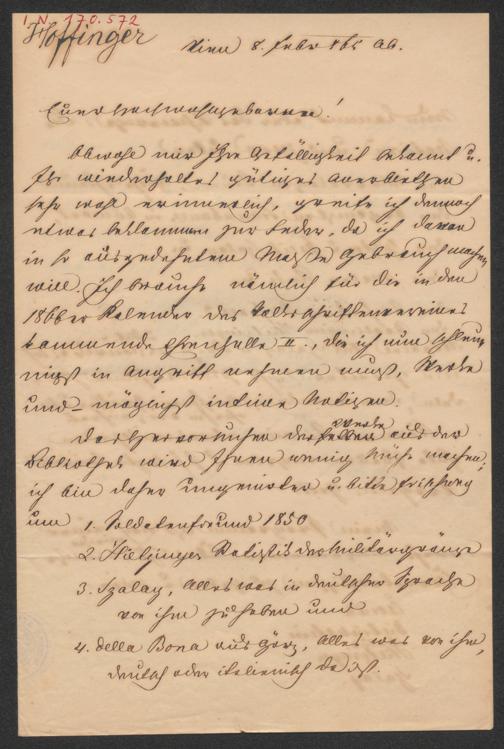 I.N. 170.572
Hoffinger
Wien 8. Febr 865 Ab.
Euer Hochwohlgeboren!
Obwohl mir Ihre Gefälligkeit bekannt u.
Ihr wiederholtes gütiges Anerbiethen
sehr wohl erinnerlich, greife ich dennoch
etwas beklommen zur Feder, da ich davon
in so ausgedehntem Maße Gebrauch machen
will. Ich brauche nämlich für die in den
1866er Kalender des Volksschriftenvereines
kommende Ehrenhalle II., die ich nun schleu-
nigst in Angriff nehmen muß, Werke
und möglichst intime Notizen.
Das Hervorsuchen der Werke aus der
Bibliothek wird Ihnen wenig Mühe machen;
ich bin daher ungenirter u. bitte frischweg
um 1. Soldatenfreund 1850
2. Hietzinger Statistik der Militärgränze
3. Szalay, Alles was in deutscher Sprache
von ihm zu haben und
4. della Bona aus Görz, Alles was von ihm,
deutsch oder italienisch da ist.